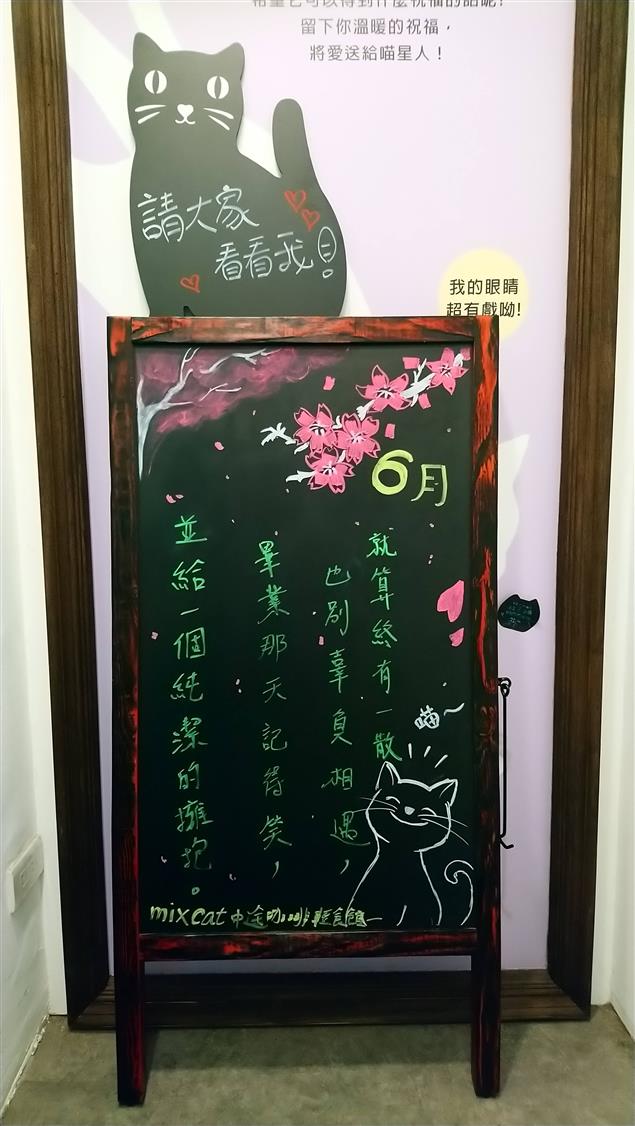 希望它可以得到什麼祝福的話呢!
留下你溫暖的祝福，
將愛送給喵星人！
請大家
看看我!
我的眼睛
超有戲呦!
6月
就算終有一散
也別辜負相遇，
畢業那天記得笑，
並給一個純潔的擁抱。
喵~
mixcat 中途咖啡輕食館